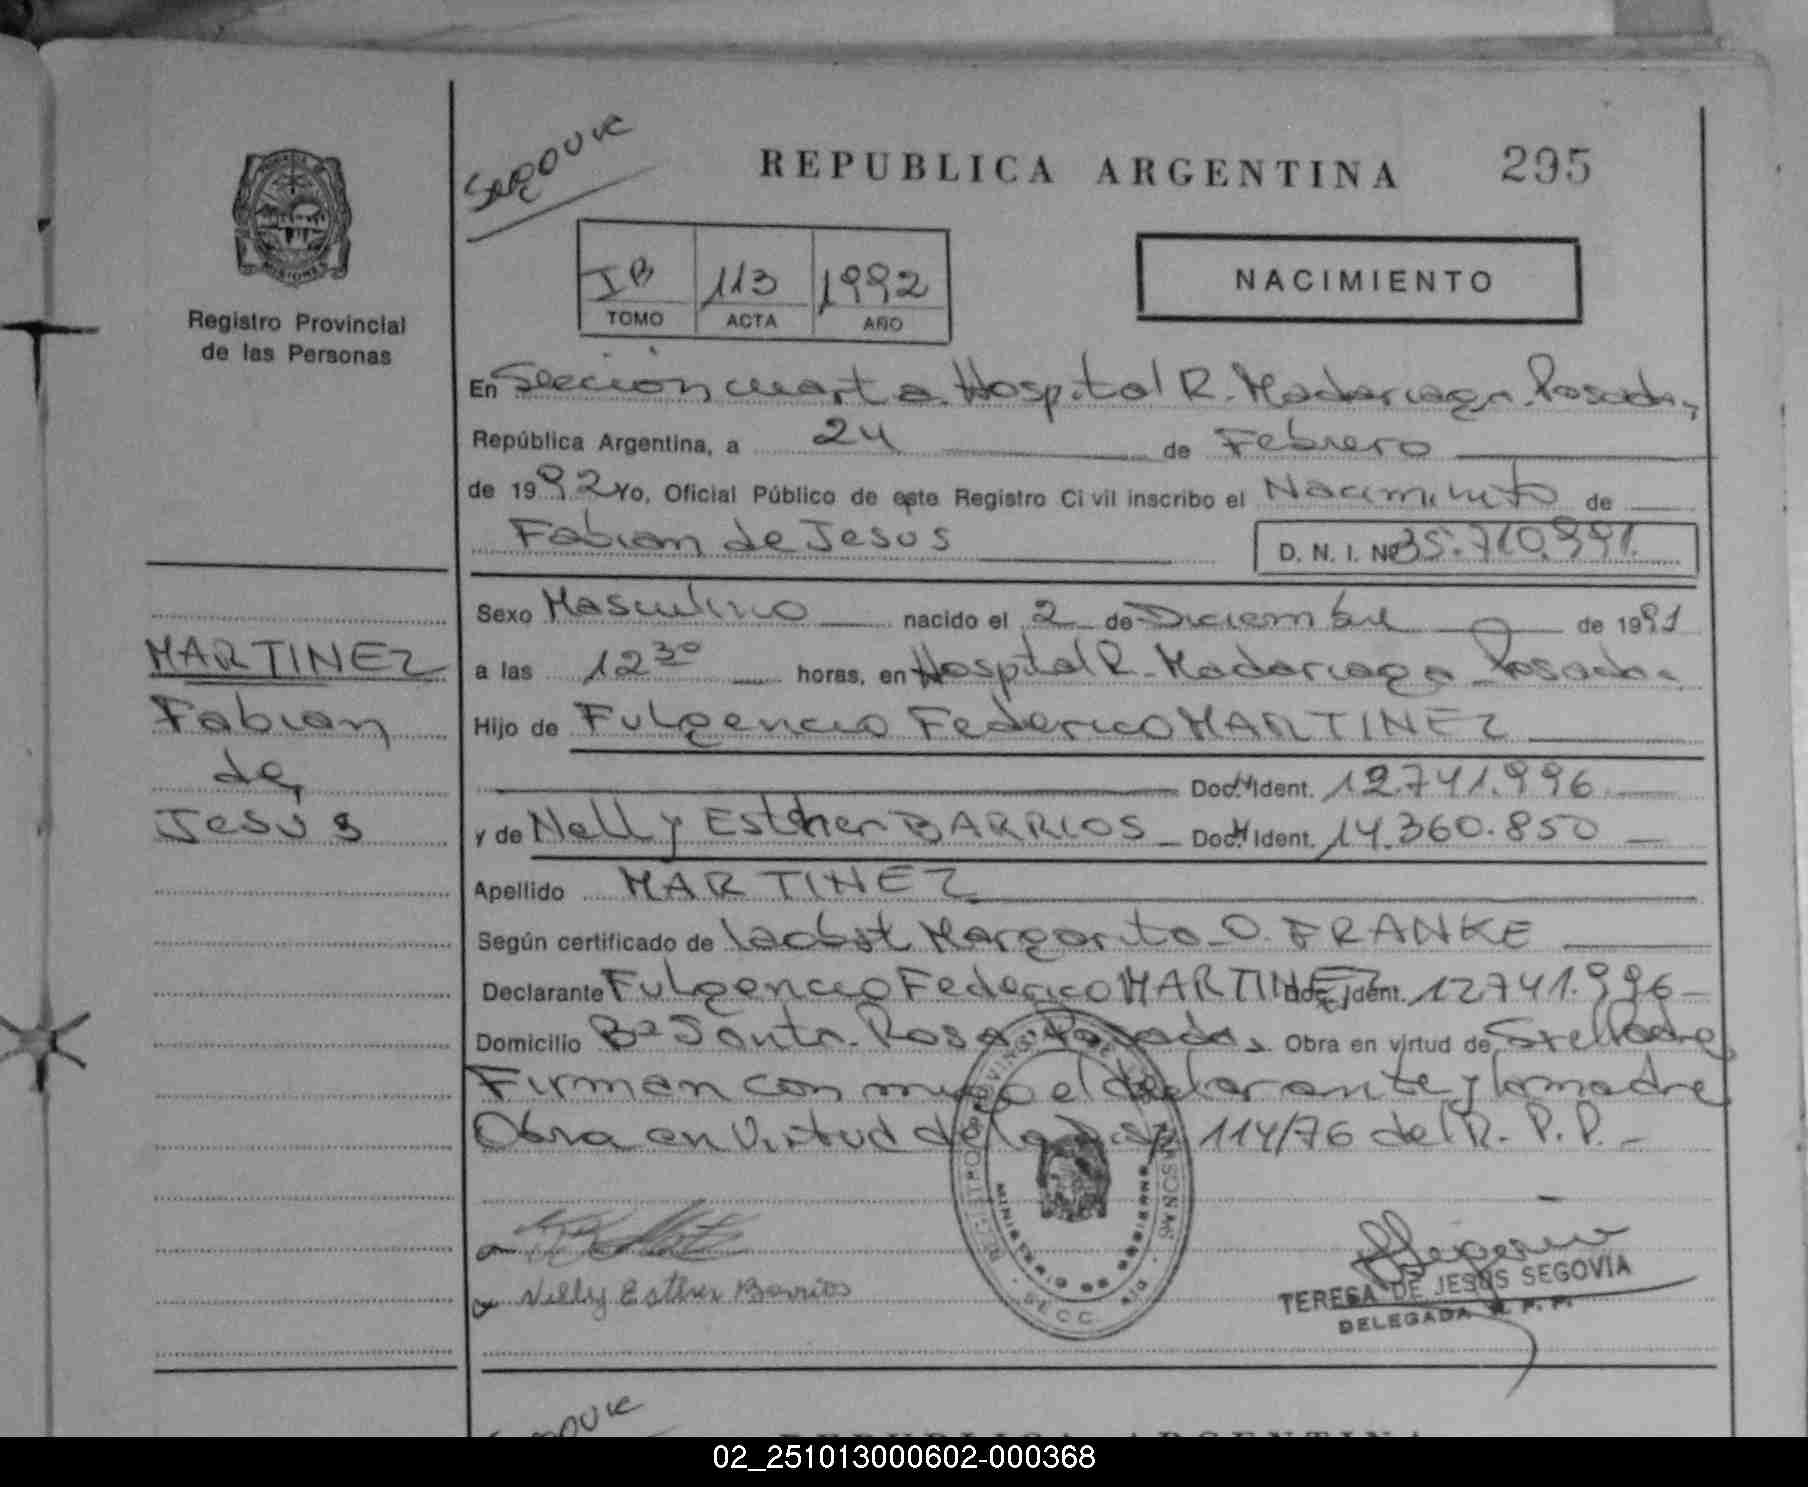 Segovia
REPUBLICA ARGENTINA 295
MISIONES
Registro Provincial
de las Personas
IB 113 1992
TOMO ACTA AÑO
NACIMIENTO
En Sección cuarta Hospital R. Madariaga. Posadas,
República Argentina, a 24 de Febrero
de 1992 Yo, Oficial Público de este Registro Civil inscribo el Nacimiento de
Fabian de Jesus D. N. I. Nº 35.710.991.
Sexo Masculino nacido el 2 de Diciembre de 1991
MARTINEZ
Fabian
de
Jesús
a las 12 30 horas, en Hospital R. Madariaga Posadas
Hijo de Fulgencio Federico MARTINEZ
Doc. Ident. 12.741.996
y de Nelly Esther BARRIOS Doc. Ident. 14.360.850
Apellido MARTINEZ
Según certificado de Margarita O. FRANKE
Declarante Fulgencio Federico MARTINEZ Doc. Ident. 12.741.996
Domicilio Bº Santa Rosa Posadas Obra en virtud de
Firman con migo el declarante y la madre
Obra en Virtud de la Disp. 114/76 del R. P. P.
Nelly Esther Barrios
MINISTERIO DE GOBIERNO
SECC.
TERESA DE JESUS SEGOVIA
DELEGADA R. P. P.
REPUBLICA ARGENTINA
02_251013000602-000368